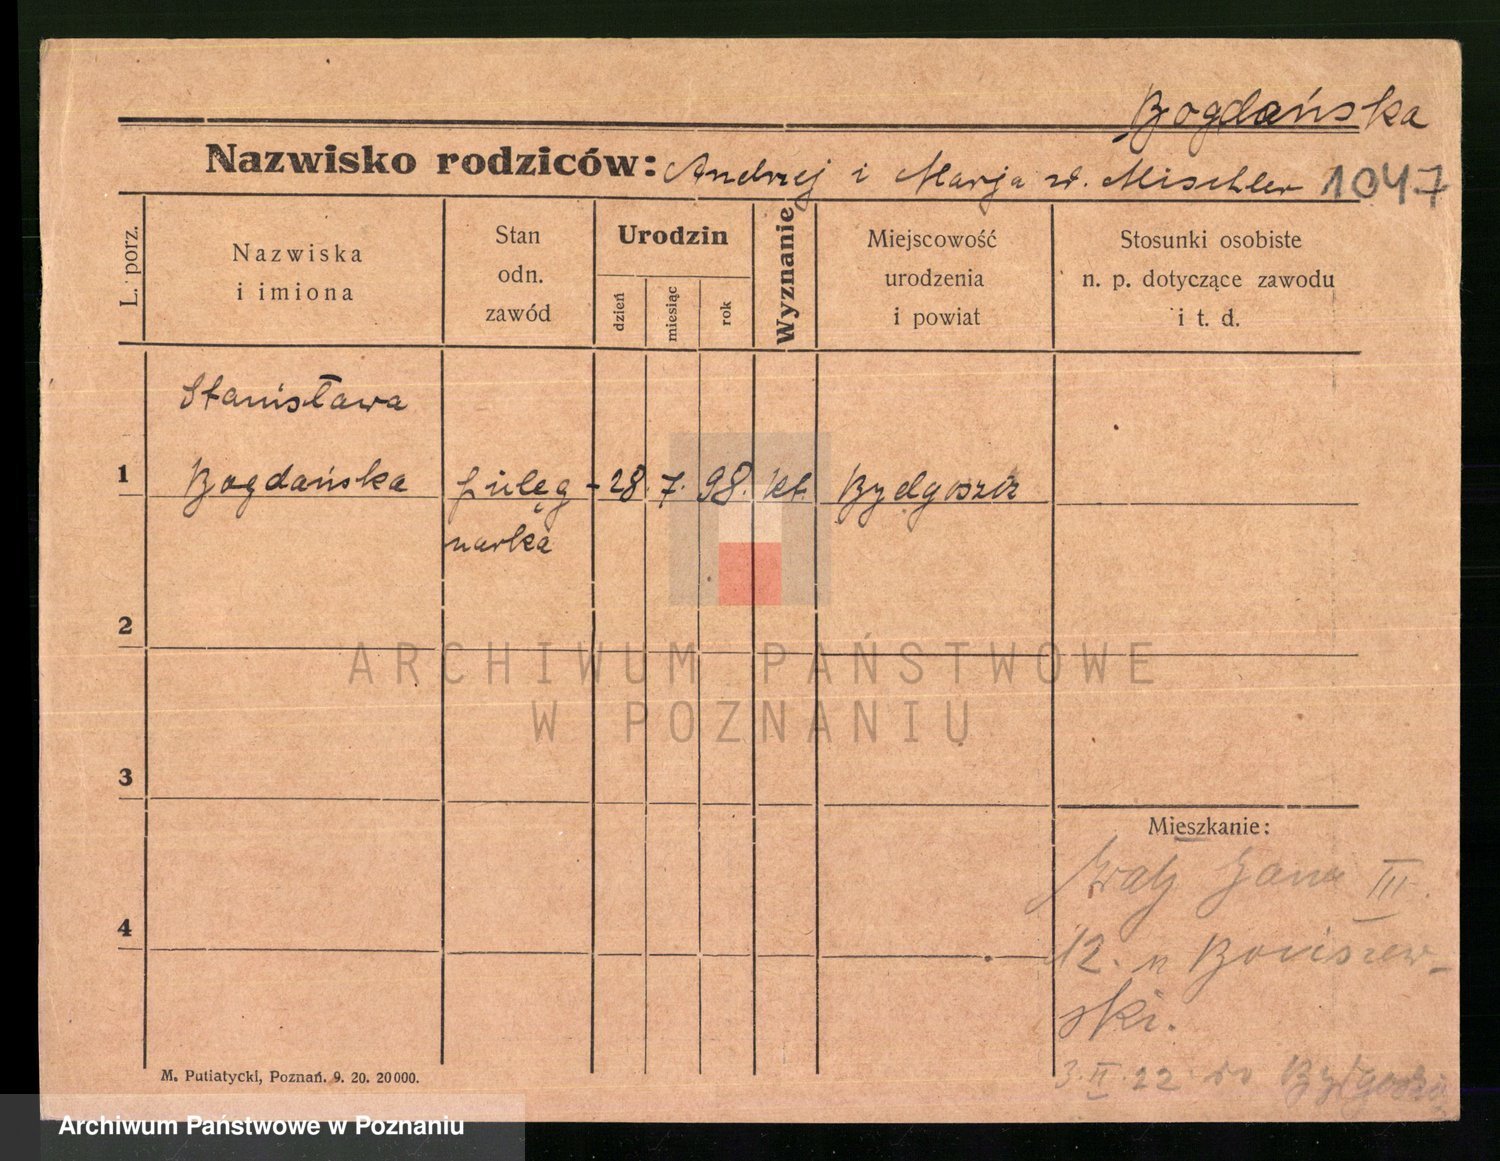 Bogdańska
Nazwisko rodziców: Andrzej i Marja z d. Mischler 1047
L. porz.
Nazwiska
i imiona
Stan
odn.
zawód
Urodzin
dzień
miesiąc
rok
Wyznanie
Miejscowość
urodzenia
i powiat
Stosunki osobiste
n. p. dotyczące zawodu
i t. d.
Stanisława
1 Bogdańska pielęg- 28. 7. 98. kt. Bydgoszcz
narka
2
ARCHIWUM PAŃSTWOWE
W POZNANIU
3
Mieszkanie:
Jana III.
4
12.
ski.
3.II.22 do Bydgoszczy
M. Putiatycki, Poznań. 9. 20. 20000.
Archiwum Państwowe w Poznaniu